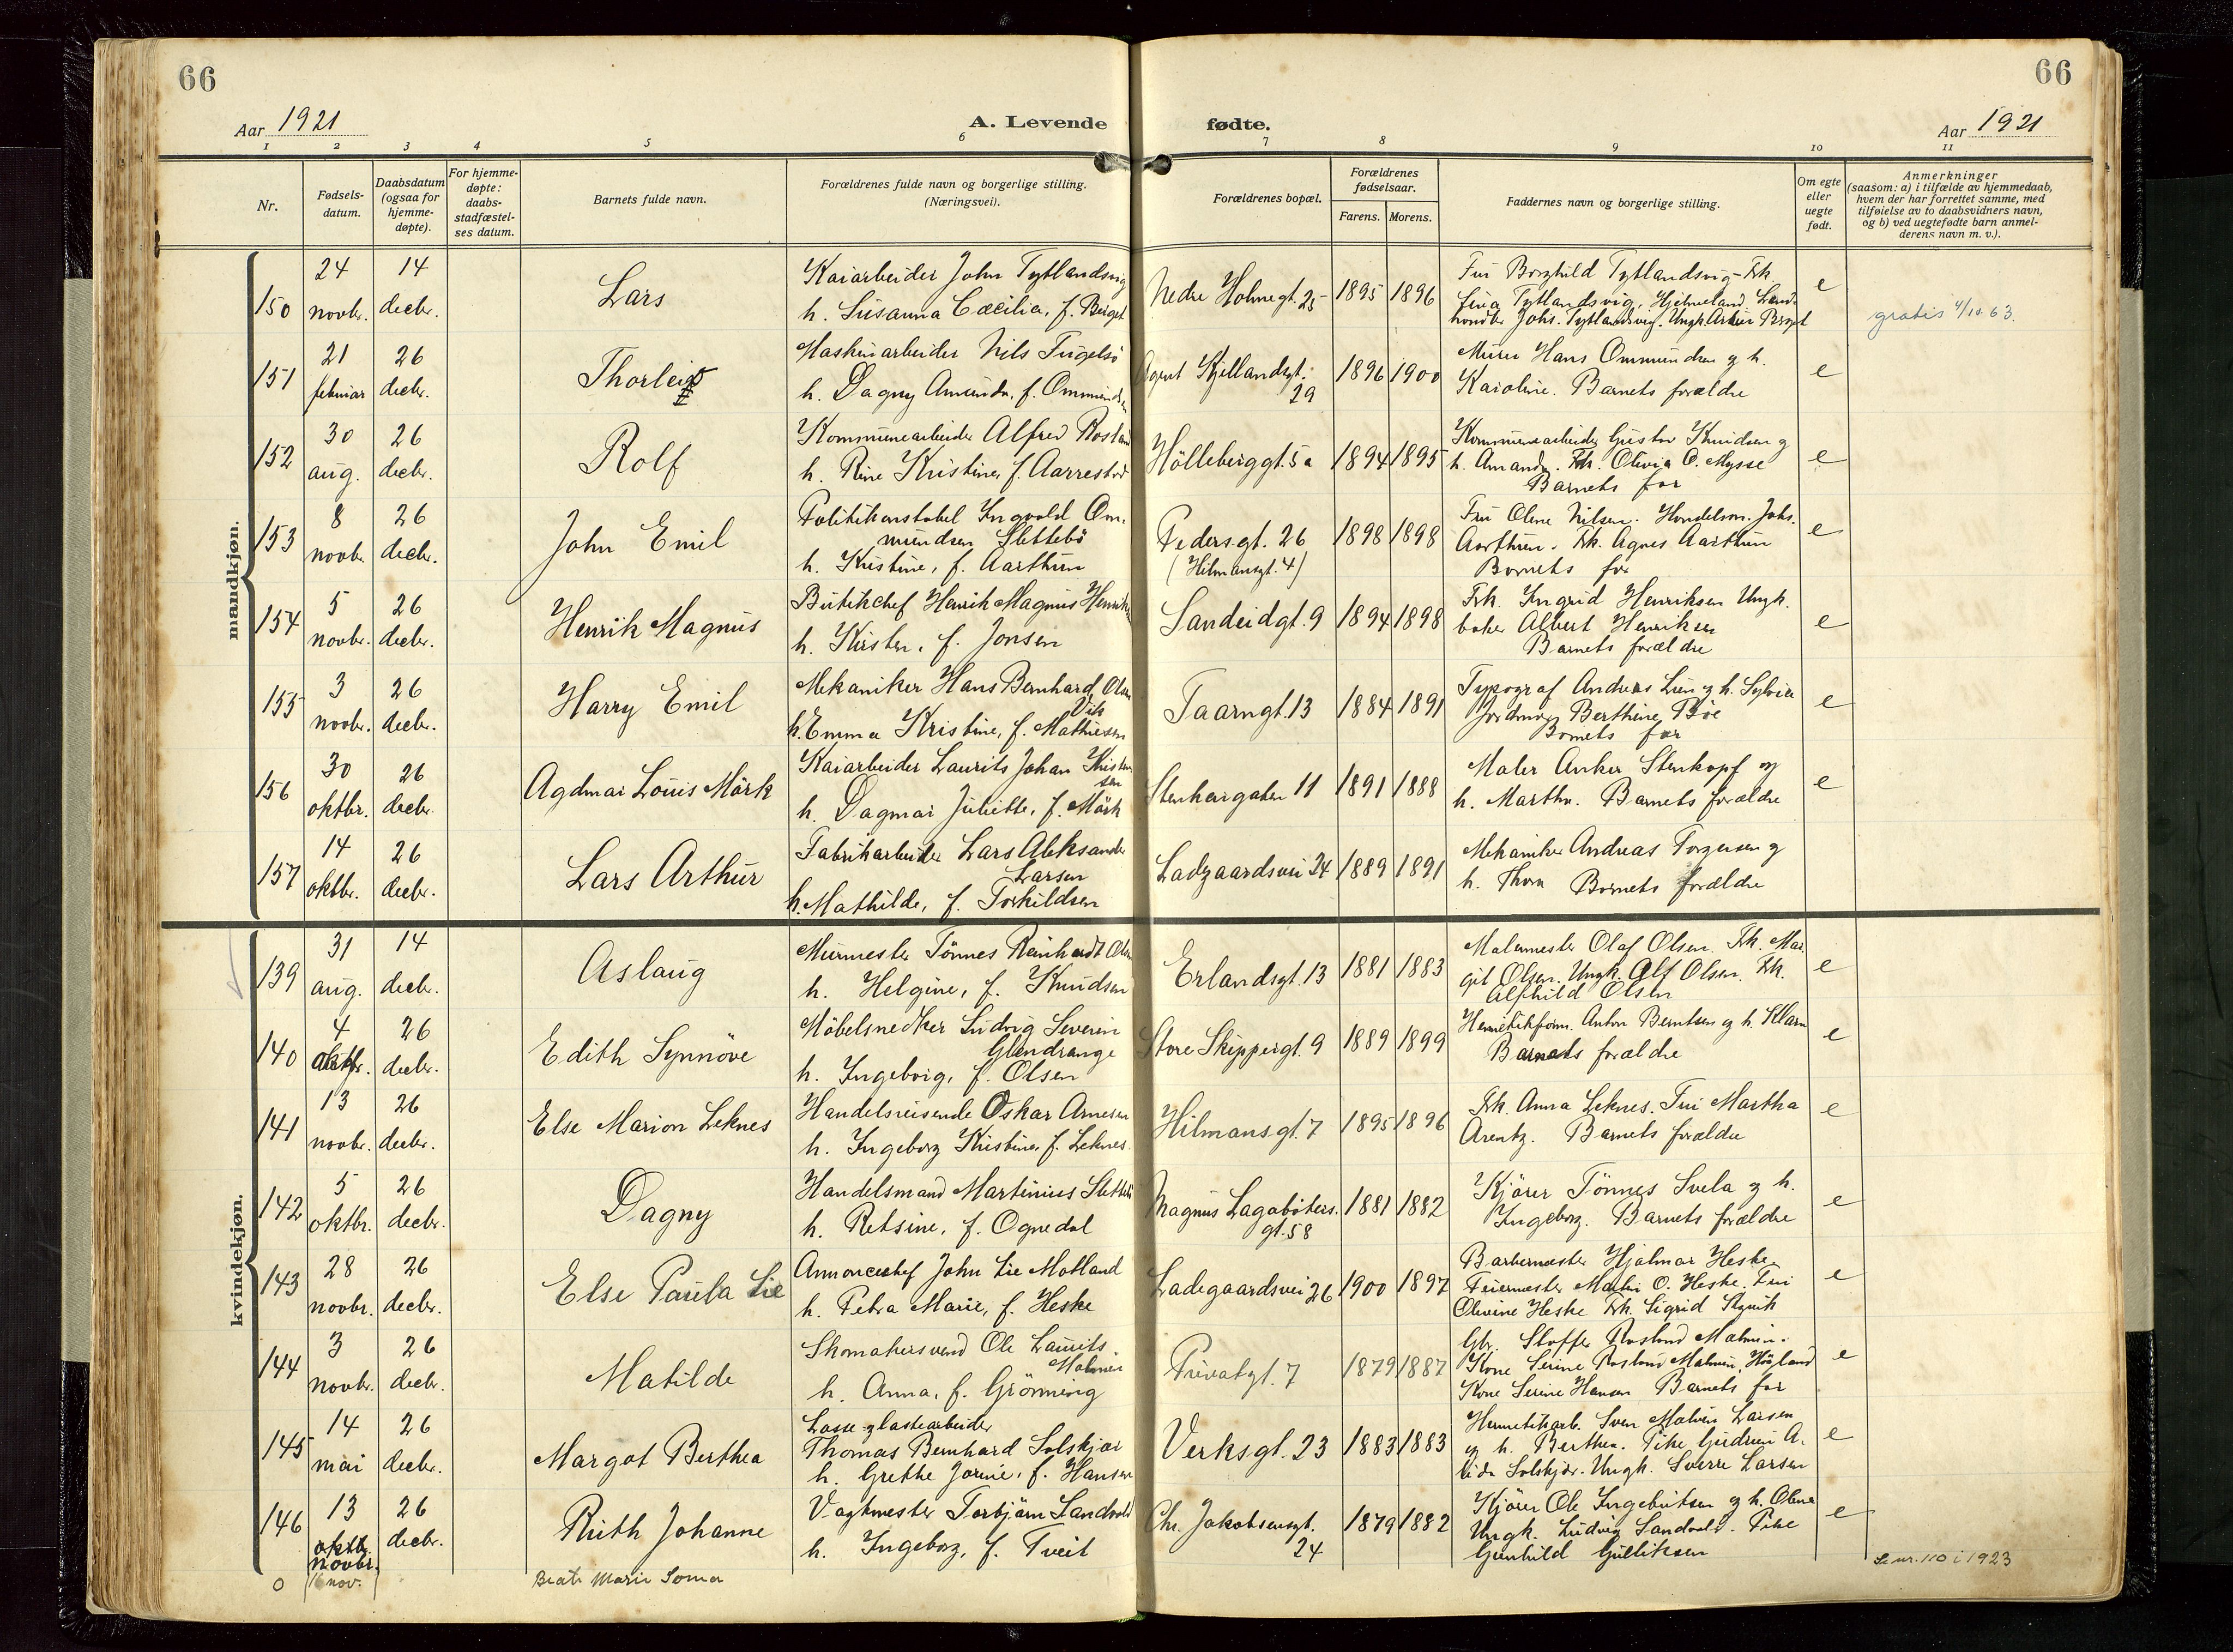 66
66
Aar 1921
A. Levende
fødte.
Aar 1921
1 2 3 4 5 6 7 8 9 10 11
Nr.
Fødsels-
datum.
Daabsdatum
(ogsaa for
hjemme-
døpte).
For hjemme-
døpte:
daabs-
stadfæstel-
ses datum.
Barnets fulde navn.
Forældrenes fulde navn og borgerlige stilling.
(Næringsvei).
Forældrenes bopæl.
Forældrenes
fødselsaar.
Farens. Morens.
Faddernes navn og borgerlige stilling.
Om egte
eller
uegte
født.
Anmerkninger
(saasom: a) i tilfælde av hjemmedaab,
hvem der har forrettet samme, med
tilføielse av to daabsvidners navn,
og b) ved uegtefødte barn anmel-
derens navn m. v.).
mandkjøn.
150
24
novbr.
14
decbr.
Lars
Kaiarbeider John Tytlandsvig
h. Susanna Cæcilia, f. Berget
Nedre Holmegt. 25
1895 1896
Fru Borghild Tytlandsvig - Frk.
Tytlandsvig, Hjelmeland. Land-
Johs. Tytlandsvig. Ungk.
e
gratis 4/10.63.
151
21
februar
26
decbr.
Thorleif
Maskinarbeider Nils
h. Dagny Amunda, f. Ommundsen
Agent Kjellandsgt.
29
1896 1900
Murer Hans Ommundsen og h.
Karoline. Barnets forældre
e
152
30
aug.
26
decbr.
Rolf
Kommunearbeider Alfred
h. Rine Kristine, f. Aarrestad
Hölleberggt. 5a
1894 1895
Kommunearbeider Gustav Knudsen og
h. Amanda. Frk. Olivia O. Mysse
Barnets far
e
153
8
novbr.
26
decbr.
John Emil
Politikonstabel Ingvald Om-
mundsen Slettebö
h. Kristine, f. Aarthun
Pedersgt. 26
(Hilmansgt. 4)
1898 1898
Fru Olene Nilsen. Handelsm. Johs.
Aarthun. Frk. Agnes Aarthun
Barnets far
e
154
5
novbr.
26
decbr.
Henrik Magnus
Butikchef Henrik Magnus Henriksen
h. Kirsten, f. Jonsen
Sandeidgt. 9
1894 1898
Frk. Ingrid Henriksen Ungk.
baker Albert Henriksen
Barnets forældre
e
155
3
novbr.
26
decbr.
Harry Emil
Mekaniker Hans Bernhard Olsen
Vik
h. Emma Kristine, f. Mathiesen
Taarngt. 13
1884 1891
Typograf Andreas Lien og h. Sylvia
Jordmor Berthine Böe
Barnets far
e
156
30
oktbr.
26
decbr.
Agdmar Louis Mörk
Kaiarbeider Laurits Johan Kristen-
sen
h. Dagmar Juliette, f. Mörk
Stenkargaten 11
1891 1888
Maler Anker Stenkopf og
h. Martha. Barnets forældre
e
157
14
oktbr.
26
decbr.
Lars Arthur
Fabrikarbeider Lars Aleksander
Larsen
h. Mathilde, f. Torkildsen
Ladgaardsvei 24
1889 1891
Mekaniker Andreas Torgersen og
h. Thora Barnets forældre
kvindekjøn.
139
31
aug.
14
decbr.
Aslaug
Murmester Tönnes Reinhardt Olsen
h. Helgine, f. Knudsen
Erlandsgt. 13
1881 1883
Malermester Olaf Olsen. Frk. Mar-
git Olsen. Ungk. Alf Olsen. Frk.
Alfhild Olsen
e
140
4
oktbr.
26
decbr.
Edith Synnöve
Möbelsnedker Ludvig Severin
Glendrange
h. Ingeborg, f. Olsen
Store Skippergt. 9
1889 1899
Hermetikform. Anton Berntsen og h. Klara
Barnets forældre
e
141
13
novbr.
26
decbr.
Else Marion Leknes
Handelsreisende Oskar Arnesen
h. Ingeborg Kristine, f. Leknes
Hilmansgt. 7
1895 1896
Frk. Anna Leknes. Fru Martha
Arentz. Barnets forældre
e
142
5
oktbr.
26
decbr.
Dagny
Handelsmand Martinius Slettebö
h. Retsine, f. Ognedal
Magnus Lagabøters
gt. 58
1881 1882
Kjörer Tönnes Svela og h.
Ingeborg. Barnets forældre
e
143
28
novbr.
26
decbr.
Else Paula Lie
Annoncechef John Lie Motland
h. Petra Marie, f. Heske
Ladegaardsvei 26
1900 1897
Barbermester Hjalmar Heske.
Feiermester Martin O. Heske. Fru
Olevine Heske Frk. Sigrid
e
144
3
novbr.
26
decbr.
Matilde
Skomakersvend Ole Laurits
Malmin
h. Anna, f. Grönning
Privatgt. 7
1879 1887
Gbr. Stoffer Rosland Malmin.
Kone Serine Rosland Malmin, Höiland
Kone Serine Hansen Barnets far
e
145
14
mai
26
decbr.
Margot Berthea
Losse og lastearbeider
Thomas Bernhard Solskjær
h. Grethe Jorine, f. Hansen
Verksgt. 23
1883 1883
Hermetikarb. Sven Malvin Larsen
og h. Berthea. Pike Gudrun A-
lida Solskjær. Ungk. Sverre Larsen
e
146
13
oktbr.
novbr.
26
decbr.
Ruth Johanne
Vagtmester Torbjörn Sandvold
h. Ingeborg, f. Tveit
Chr. Jakobsensgt.
24
1879 1882
Kjörer Ole Ingebretsen og h. Olena
Ungk. Ludvig Sandvold. Pike
Gunhild Gulliksen
e
0
(16 nov.)
Beate Marie Soma
Se nr. 110 i 1923